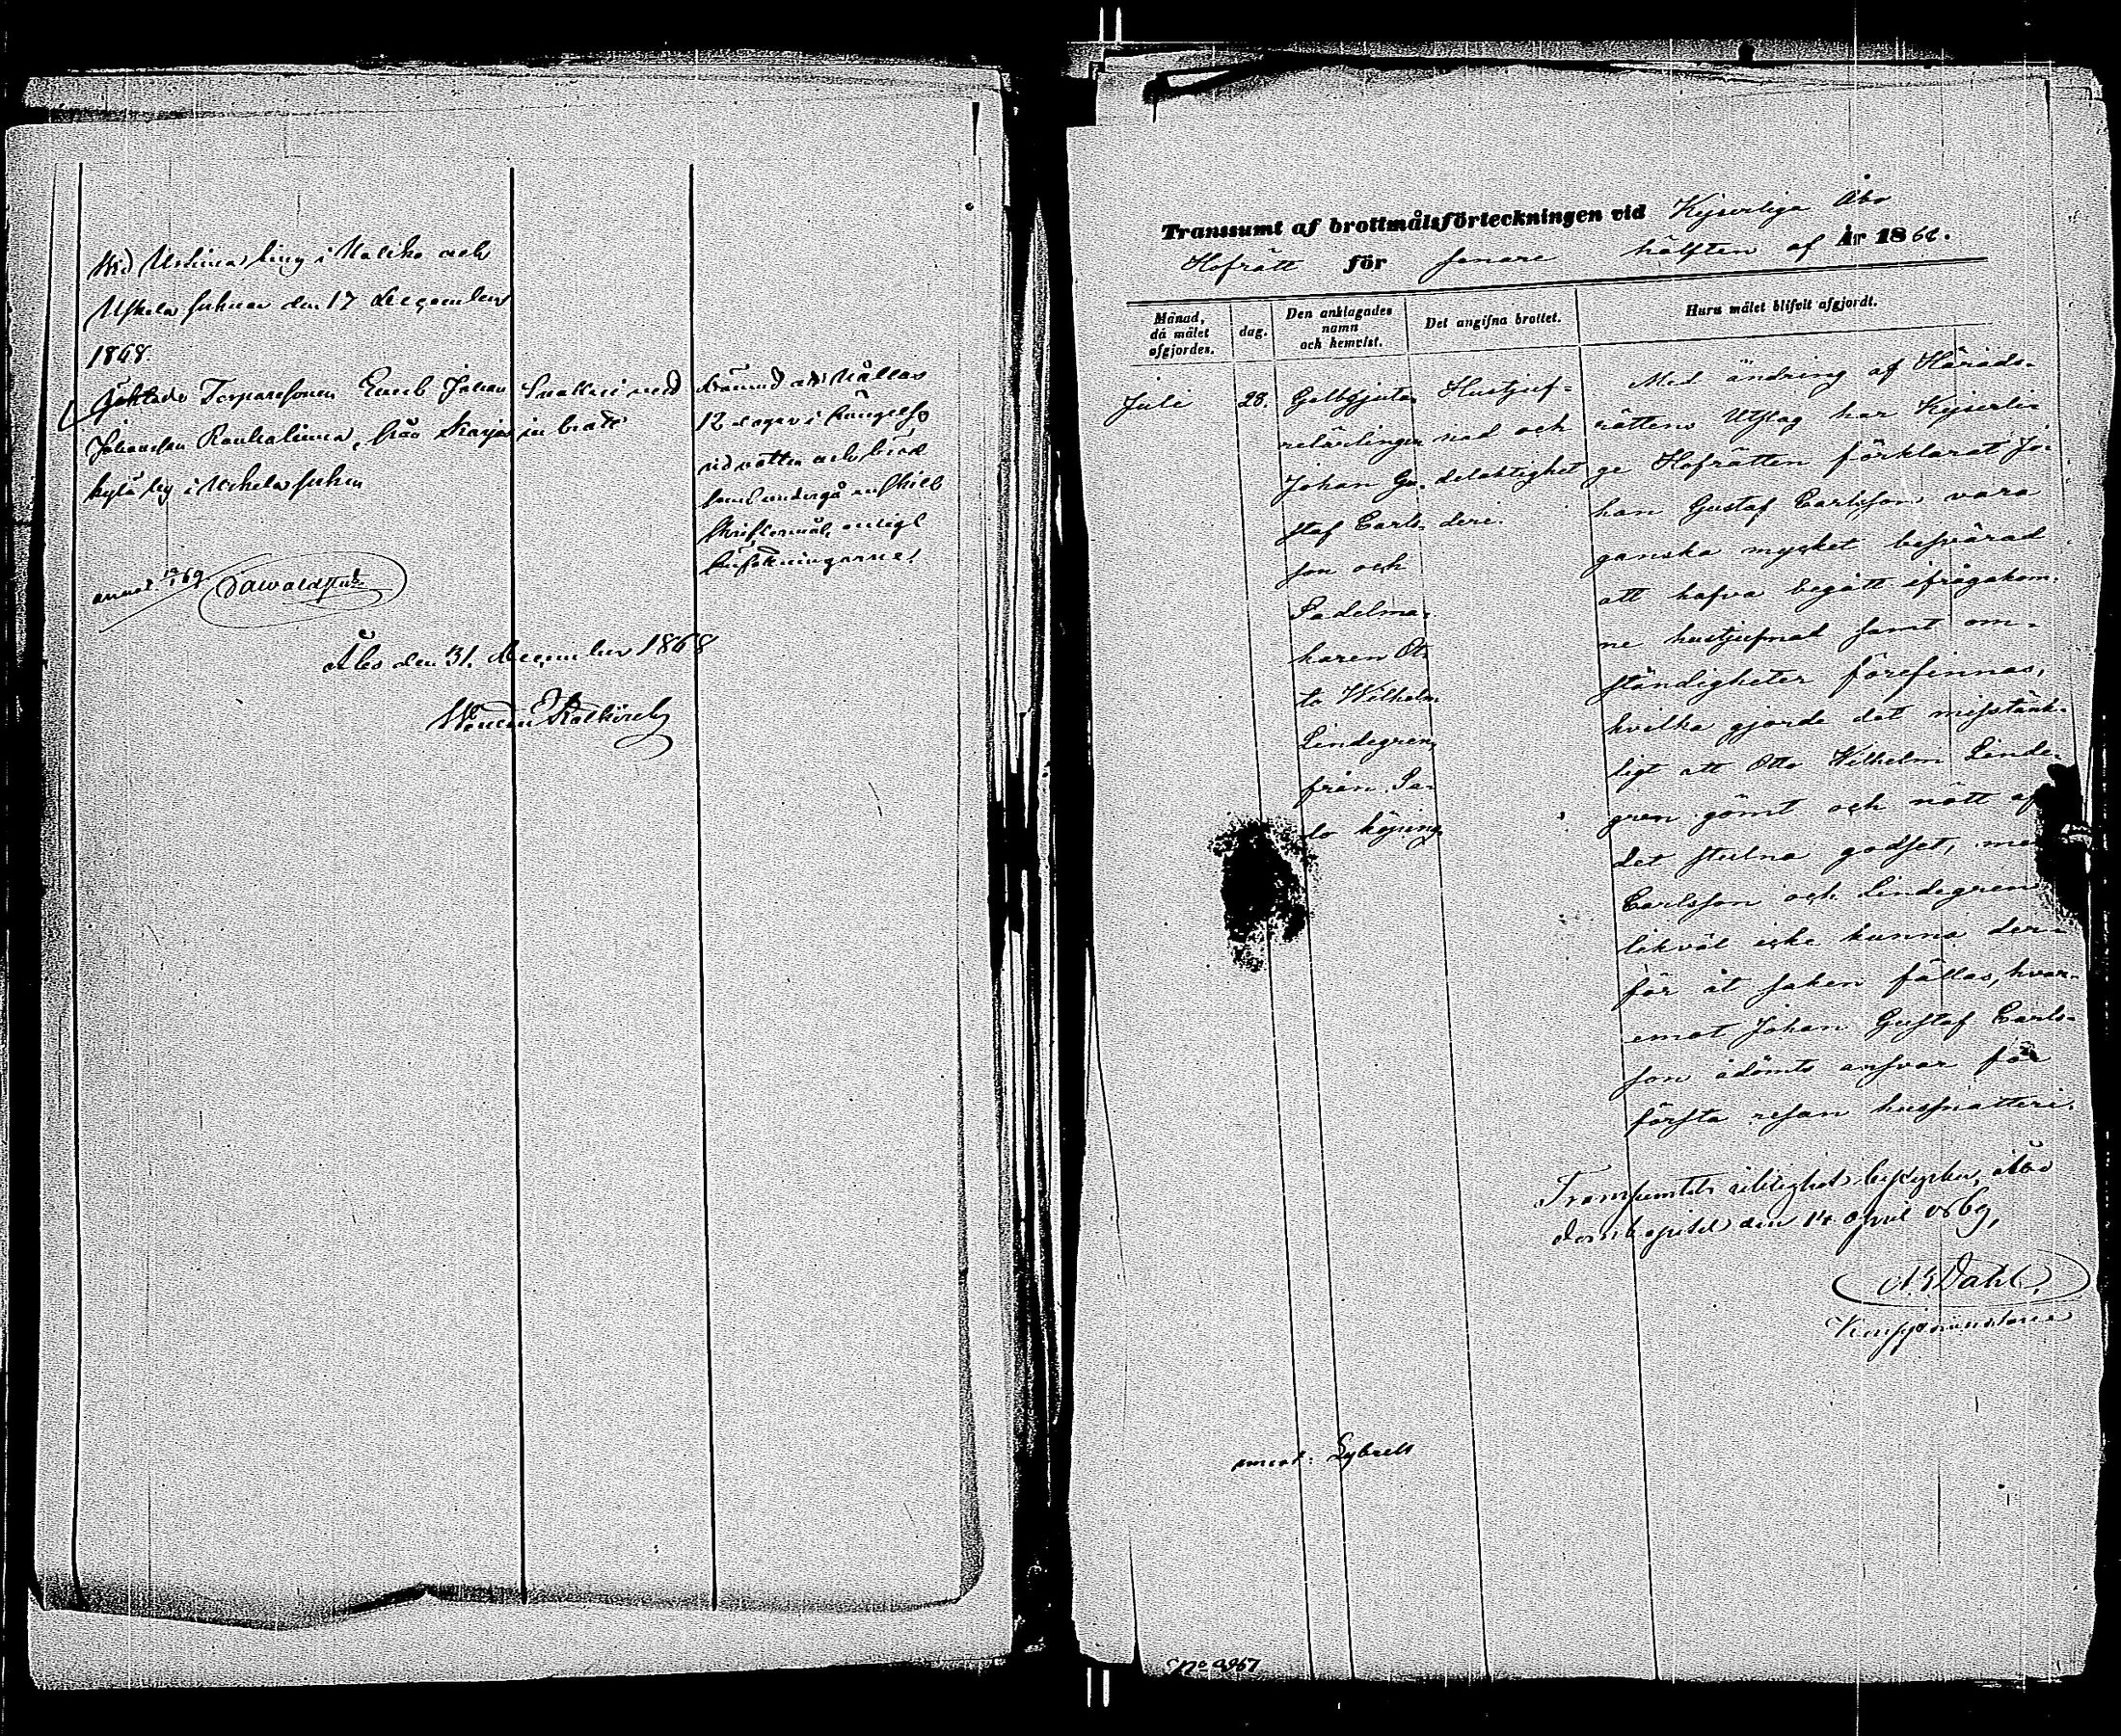 Wid Urtima ting i Haliko och
Uskela socknar den 17 December
1868.
Häktade Torparesonen Emil Johan
Johansson Raukalinna, från Karja
kylä by i Uskela socken
Snatteri med
in brott
dömd att hållas
12 dagar i fängelse
vid vatten och bröd
samt undergå enskilt
skriftermål, enligt
Åbo den 31. December 1868
Transsumt af brottmålsförteckningen vid Kejserliga Åbo
Hofrätt för senare hälften af År 1868.
Månad,
då målet
afgjordes.
dag.
Den anklagades
namn
och hemvist.
Det angifna brottet.
Huru målet blifvit afgjordt.
Juli
28.
Gelbgjuta-
relärlingen
Johan Gu-
staf Carls-
son och
Sadelma-
karen Ot-
to Wilhelm
Lindegren,
från Sa-
lo köping
Hustjuf-
nad och
delaktighet
deri.
Med ändring af Härads-
rättens Utslag har Kejserli-
ge Hofrätten förklarat Jo-
han Gustaf Carlsson vara
ganska mycket besvärad
att hafva begått ifrågakom-
ne hustjufnad samt om-
ständigheter förefinnas,
hvilka gjorde det misstänk-
ligt att Otto Wilhelm Linde-
gren gömt och nött af
det stulna godset, me
Carlsson och Lindegren
likväl icke kunna der-
för åt saken fällas, hvar-
emot Johan Gustaf Carls-
son ådömts ansvar för
första resan hussnatteri.
Transsumtets riktighet bestyrker, Åbo
Domkapitel den 14 April 1869,
A. G. Dahl.